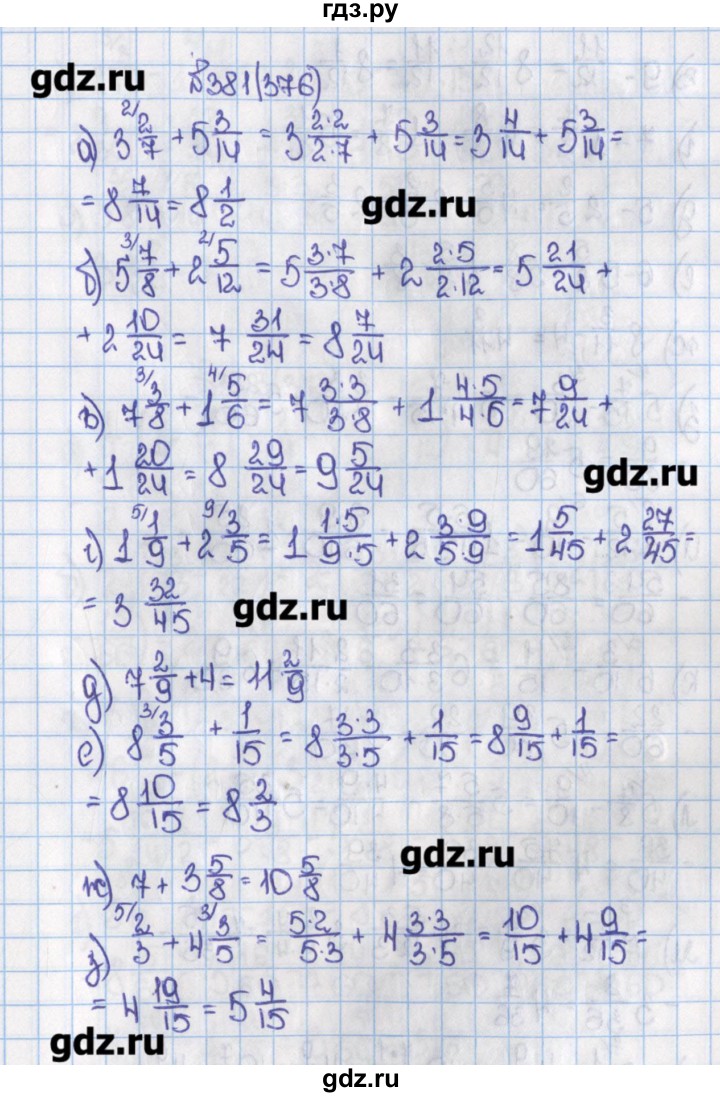 гдз.ру
gdz.ru №381(376)
а) 3 2/ 2/7 + 5 3/14 = 3 2·2/2·7 + 5 3/14 = 3 4/14 + 5 3/14 =
= 8 7/14 = 8 1/2 gdz.ru
б) 5 3/ 7/8 + 2 2/ 5/12 = 5 3·7/3·8 + 2 2·5/2·12 = 5 21/24 +
+ 2 10/24 = 7 31/24 = 8 7/24
в) 7 3/ 3/8 + 1 4/ 5/6 = 7 3·3/3·8 + 1 4·5/4·6 = 7 9/24 +
+ 1 20/24 = 8 29/24 = 9 5/24 gdz.ru
г) 1 5/ 1/9 + 2 9/ 3/5 = 1 1·5/9·5 + 2 3·9/5·9 = 1 5/45 + 2 27/45 =
= 3 32/45 gdz.ru
д) 7 2/9 + 4 = 11 2/9
е) 8 3/ 3/5 + 1/15 = 8 3·3/3·5 + 1/15 = 8 9/15 + 1/15 =
= 8 10/15 = 8 2/3
gdz.ru
ж) 7 + 3 5/8 = 10 5/8
з) 5/ 2/3 + 4 3/ 3/5 = 5·2/5·3 + 4 3·3/3·5 = 10/15 + 4 9/15 =
= 4 19/15 = 5 4/15
gdz.ru
gdz.ru